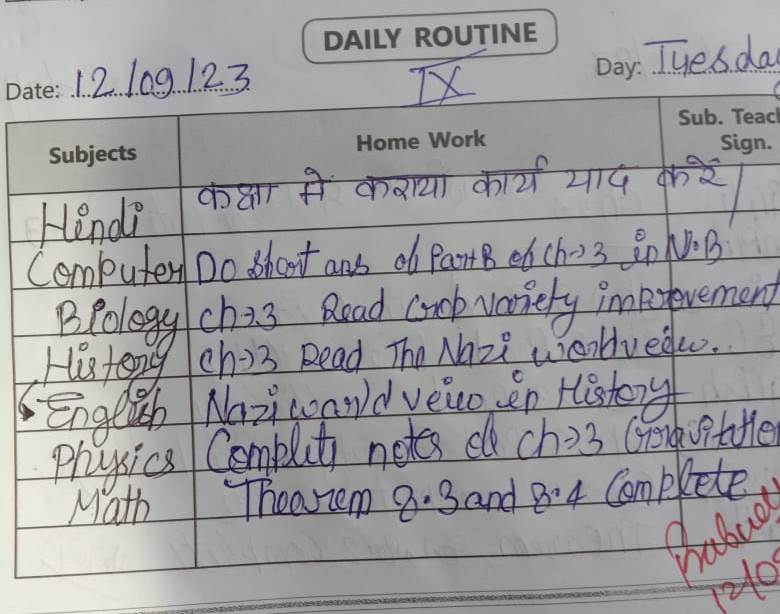 DAILY ROUTINE
Date: 12/09/23 IX Day: Tuesda
Subjects Home Work Sub. Teach Sign.
Hindi कक्षा में कराया कार्य याद करें।
Computer Do short ans of Part B of ch->3 in N.B
Biology ch->3 Read crop variety improvement
History ch->3 Read The Nazi worldveiw.
English Nazi warld veiw in History
Physics Complety notes of ch->3 Gravitatio
Math Thearem 8.3 and 8.4 Complete
12/09